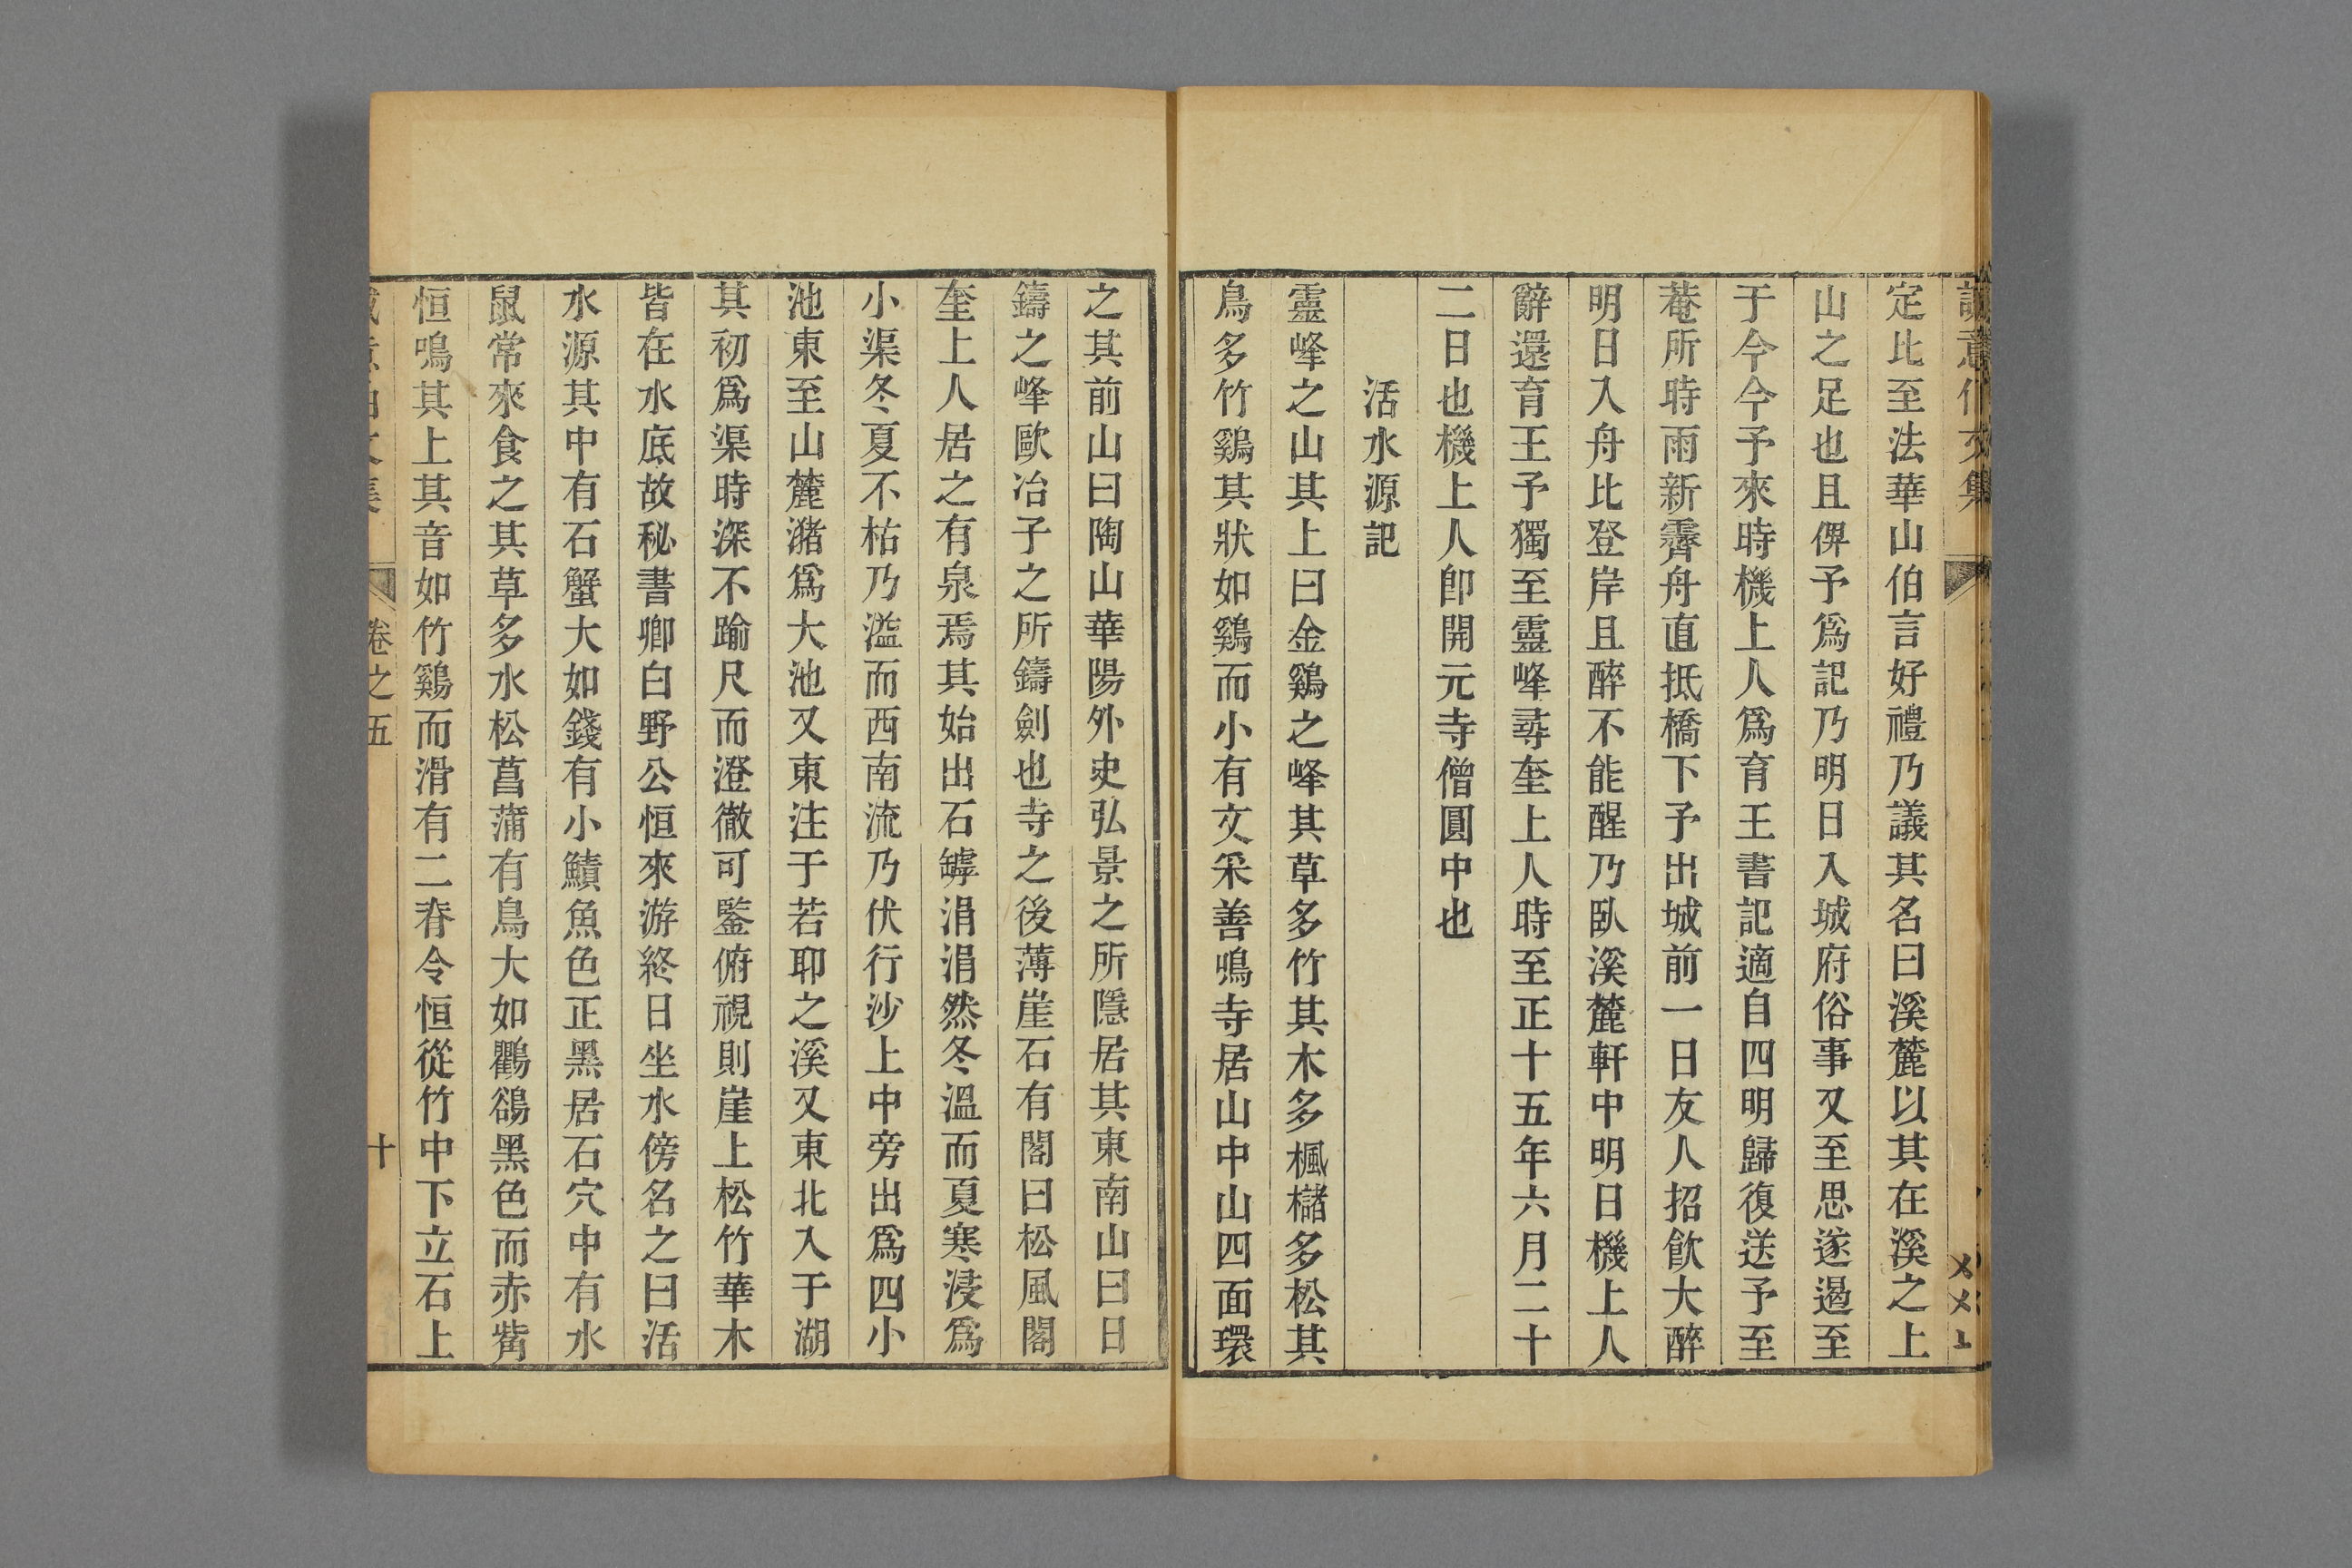 定比至法華山伯言好禮乃議其名曰溪麓以其在溪之上
山之足也且俾予爲記乃明日入城府俗事又至思遂遏至
于今今予來時機上人爲育王書記適自四明歸復送予至
菴所時雨新霽舟直抵橋下予出城前一日友人招飮大醉
明日入舟比登岸且醉不能醒乃臥溪麓軒中明日機上人
辭還育王予獨至靈峰尋奎上人時至正十五年六月二十
二日也機上人卽開元寺僧圓中也
活水源記
靈峰之山其上曰金鷄之峰其草多竹其木多楓櫧多松其
鳥多竹鷄其狀如鷄而小有文采善鳴寺居山中山四面環
之其前山曰陶山華陽外史弘景之所隱居其東南山曰日
鑄之峰歐冶子之所鑄劍也寺之後薄崖石有閣曰松風閣
奎上人居之有泉焉其始出石罅涓涓然冬溫而夏寒浸爲
小渠冬夏不枯乃溢而西南流乃伏行沙上中旁出爲四小
池東至山麓瀦爲大池又東注于若耶之溪又東北入于湖
其初爲渠時深不踰尺而澄徹可鑒俯視則崖上松竹華木
皆在水底故秘書卿白野公恒來游終日坐水傍名之曰活
水源其中有石蟹大如錢有小鱝魚色正黑居石穴中有水
鼠常來食之其草多水松菖蒲有鳥大如鸜鵒黑色而赤觜
恒鳴其上其音如竹鷄而滑有二脊令恒從竹中下立石上
卷之五
十